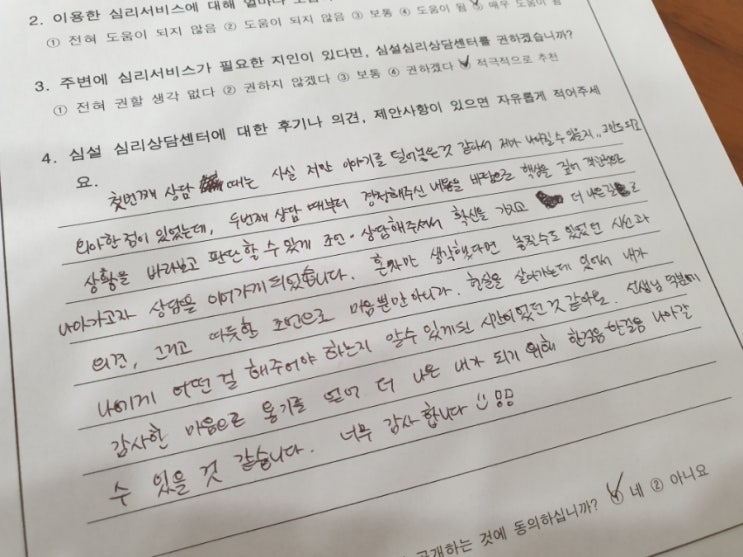 2. 이용한 심리서비스에 대해 얼마나
① 전혀 도움이 되지 않음 ② 도움이 되지 않음 ③ 보통 ④ 도움이 됨 ⑤ 매우 도움이 됨
3. 주변에 심리서비스가 필요한 지인이 있다면, 심설심리상담센터를 권하겠습니까?
① 전혀 권할 생각 없다 ② 권하지 않겠다 ③ 보통 ④ 권하겠다 ⑤ 적극적으로 추천
4. 심설 심리상담센터에 대한 후기나 의견, 제안사항이 있으면 자유롭게 적어주세
요.
첫번째 상담 때는 사실 저만 이야기를 털어놓은것 같아서 제가 나아질 수 있을지..
의아한 점이 있었는데, 두번째 상담 때부터 걱정해주신 내용을 바탕으로 핵심을 짚어
상황을 바라보고 판단할 수 있게 조언·상담해주셔서 확신을 가지고 더 나은길로
나아가고자 상담을 이어가게 되었습니다. 혼자만 생각했다면 놓칠수도 있었던 시선과
의견, 그리고 따듯한 조언으로 마음뿐만 아니라, 현실을 살아가는데 있어서 내가
나에게 어떤 걸 해주어야 하는지 알수 있게된 시간이었던 것 같아요. 선생님 덕분에
감사한 마음으로 용기를 얻어 더 나은 내가 되기 위해 한걸음 한걸음 나아갈
수 있을 것 같습니다. 너무 감사합니다
공개하는 것에 동의하십니까? ① 네 ② 아니요